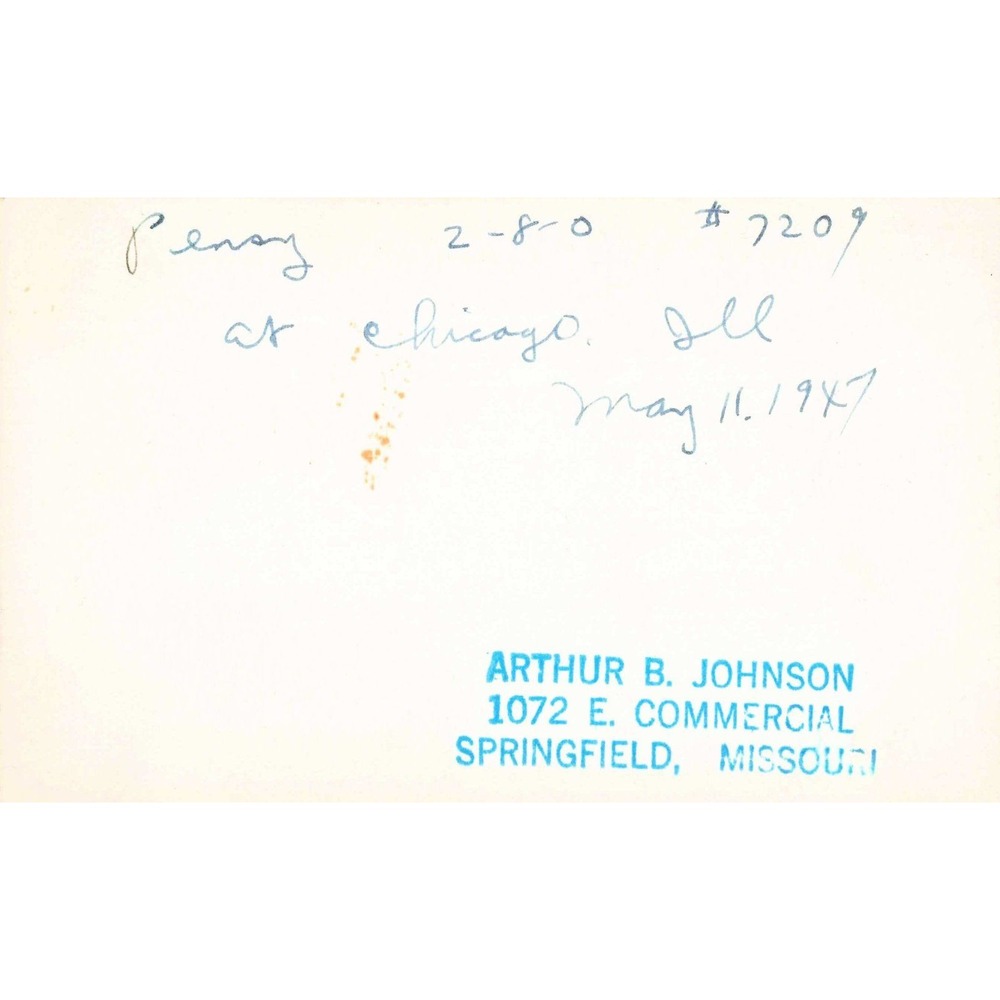 Pensy 2-8-0 #7209
at Chicago. Ill
May 11. 1947
ARTHUR B. JOHNSON
1072 E. COMMERCIAL
SPRINGFIELD, MISSOURI